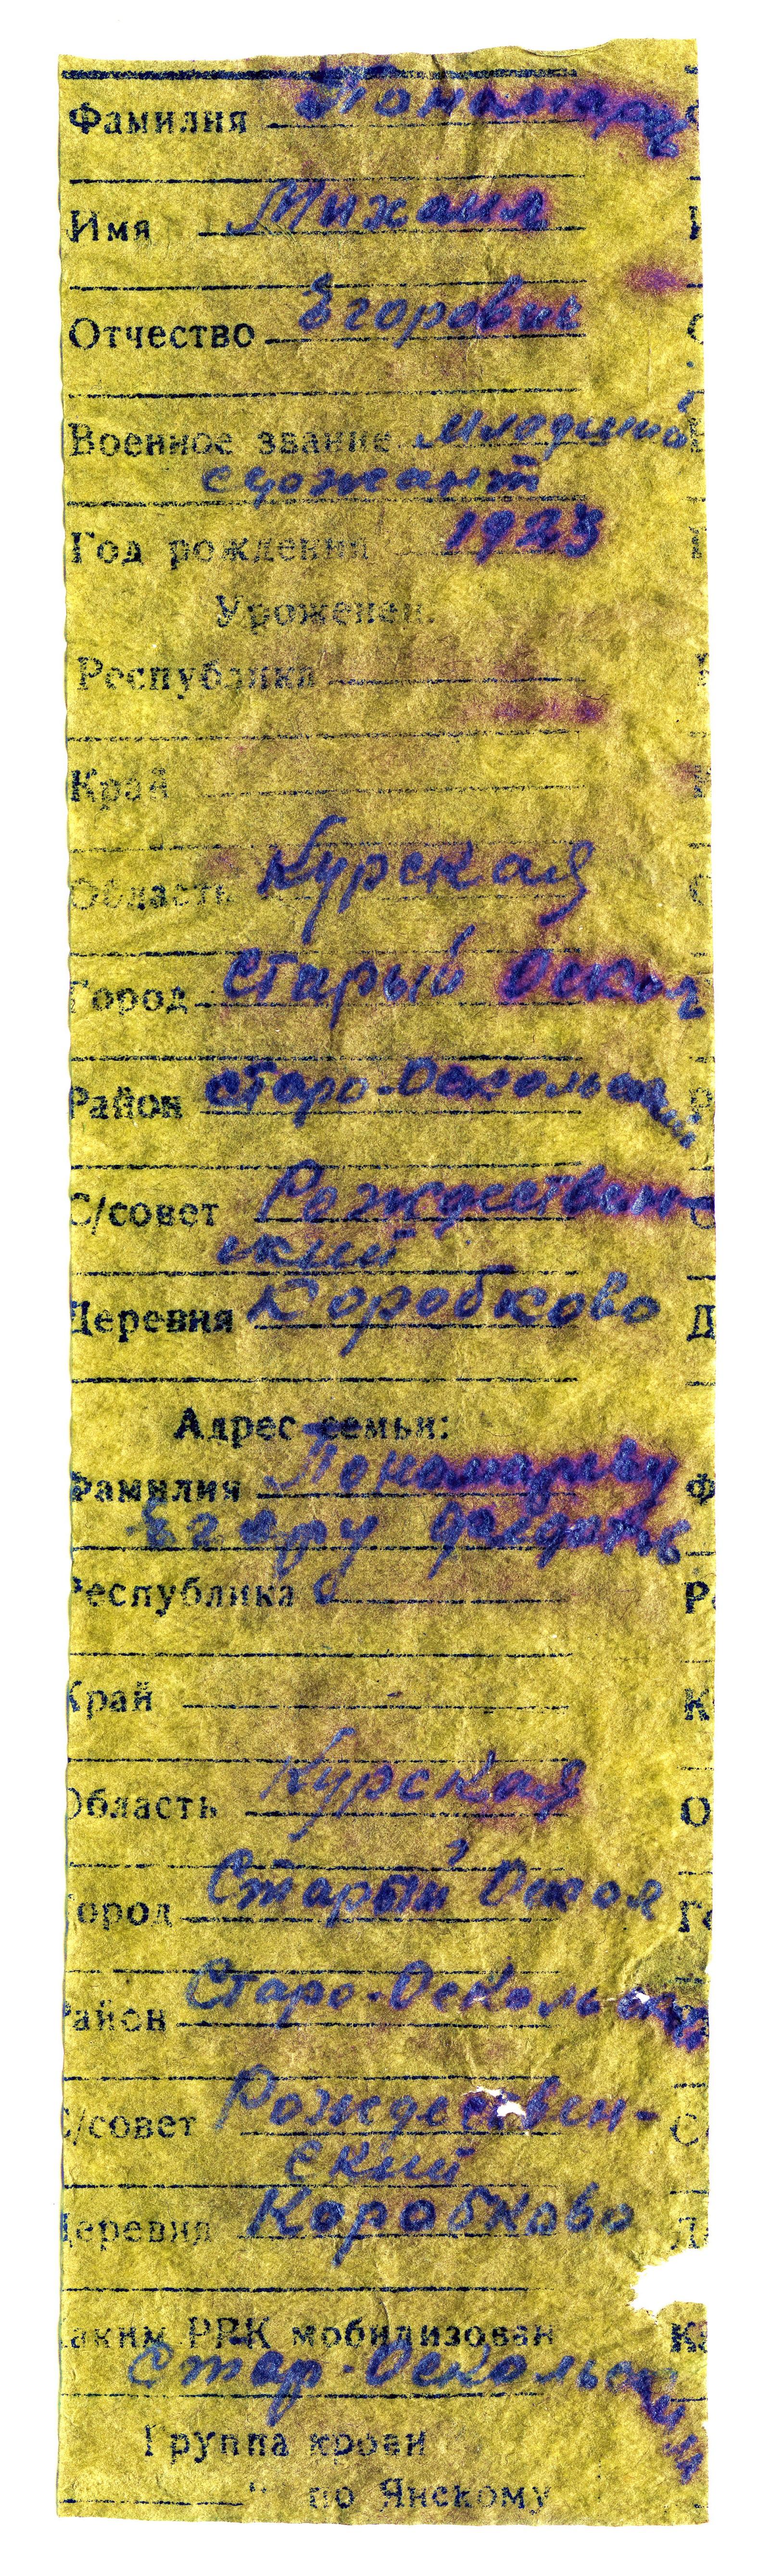 Фамилия Пономарёв
Имя Михаил
Отчество Егорович
Военное звание младший
сержант
Год рождения 1923
Уроженец:
Республика
Край
Область Курская
Город Старый Оскол
Район Старо-Оскольский
С/совет Рождествен-
ский
Деревня Коробково
Адрес семьи:
Фамилия Пономарёву
Егору
Республика
Край
Область Курская
Город Старый Оскол
Район Старо-Оскольский
С/совет Рождествен-
ский
Деревня Коробково
Каким РВК мобилизован
Стар-Оскольским
Группа крови
" по Янскому